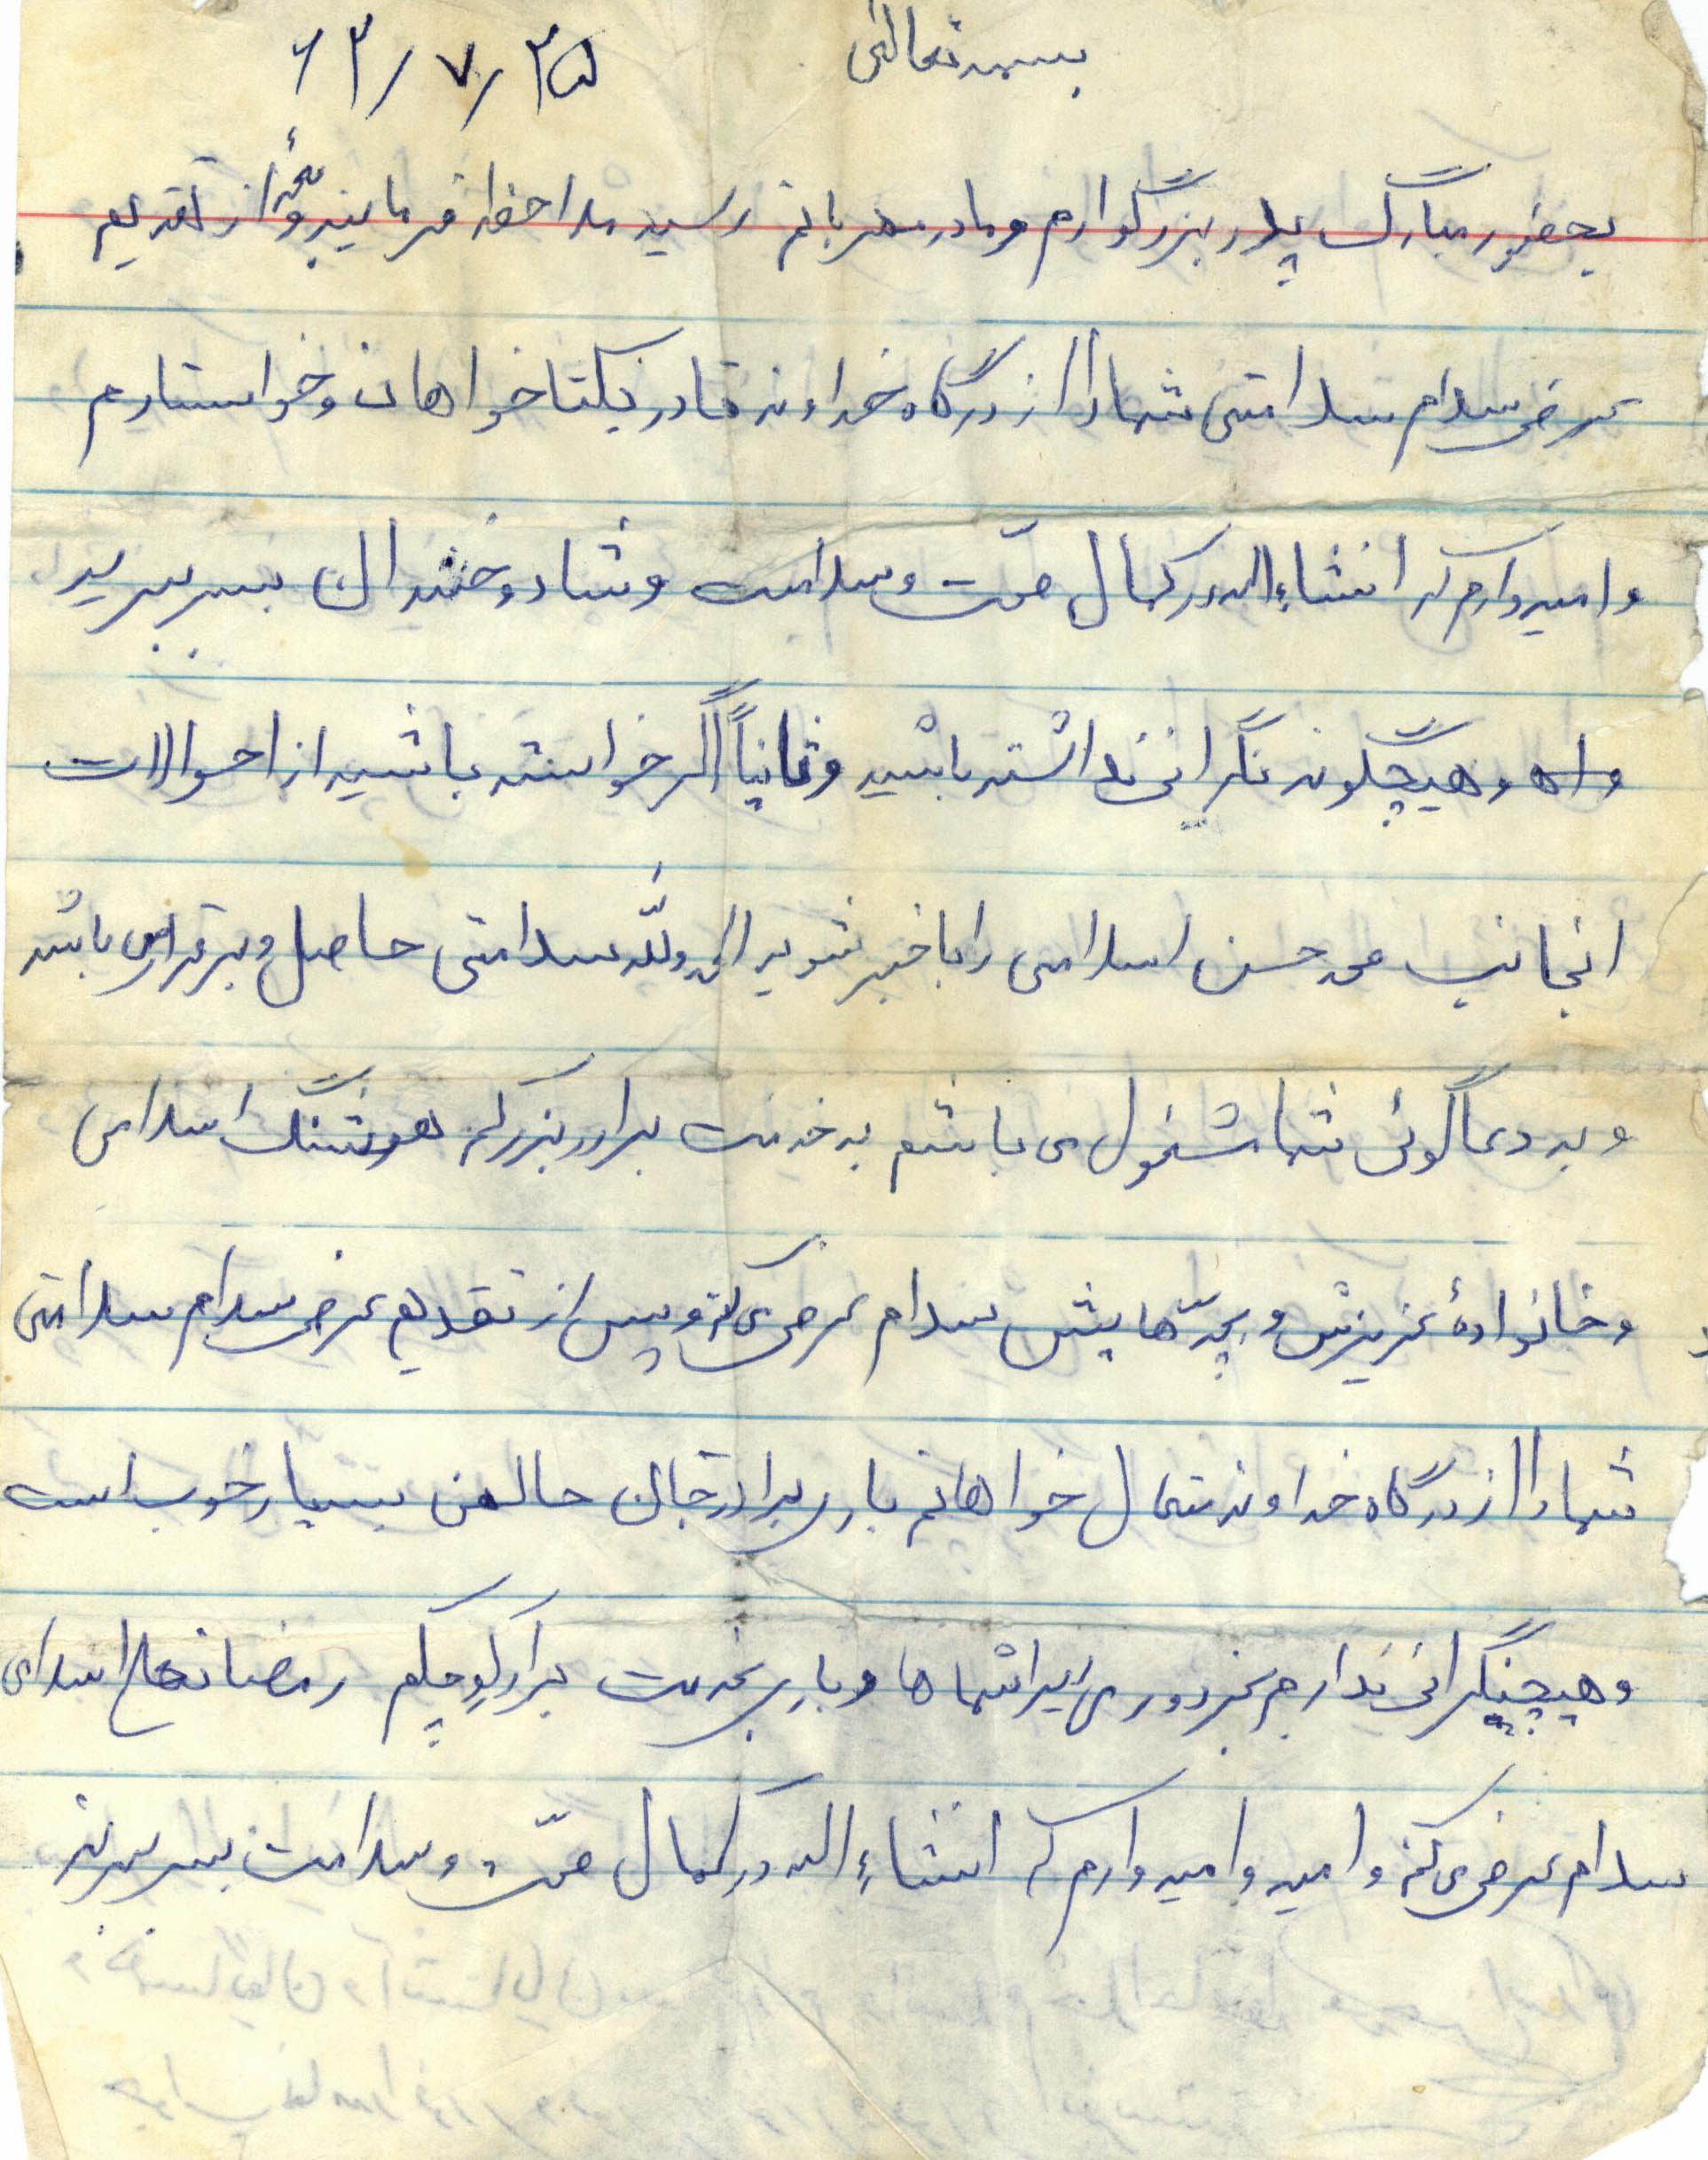 بسمه تعالی ۶۳/۷/۲۵
بحضور مبارک پدر بزرگوارم و مادر مهربانم رسیده ملاحظه فرمایند و از تقدیم
عرض سلام سلامتی شما را از درگاه خداوند قادر یکتا خواهان و خواستارم
و امیدوارم که انشاءالله در کمال صحّت و سلامت و شاد و خندان بسر ببرید
و هیچگونه نگرانی نداشته باشید و ثانیاً اگر خواسته باشید از احوالات
اینجانب محمد حسن اسلامی را با خبر شوید الحمدولله سلامتی حاصل و برقرار می باشد
و به دعاگوئی شما مشغول می باشم به خدمت برادر بزرگم هوشنگ اسلامی
و خانوادهٔ عزیزش و بچّه هایش سلام عرض می کنم و پس از تقدیم عرض سلام سلامتی
شما را از درگاه خداوند متعال خواهانم باری برادر جان حال من بسیار خوب است
و هیچ نگرانی ندارم بجز دوری از شماها و باری بخدمت برادر کوچکم رمضانعلی اسلامی
سلام عرض می کنم و امید و امیدوارم که انشاءالله در کمال صحّت و سلامت بسر ببرند